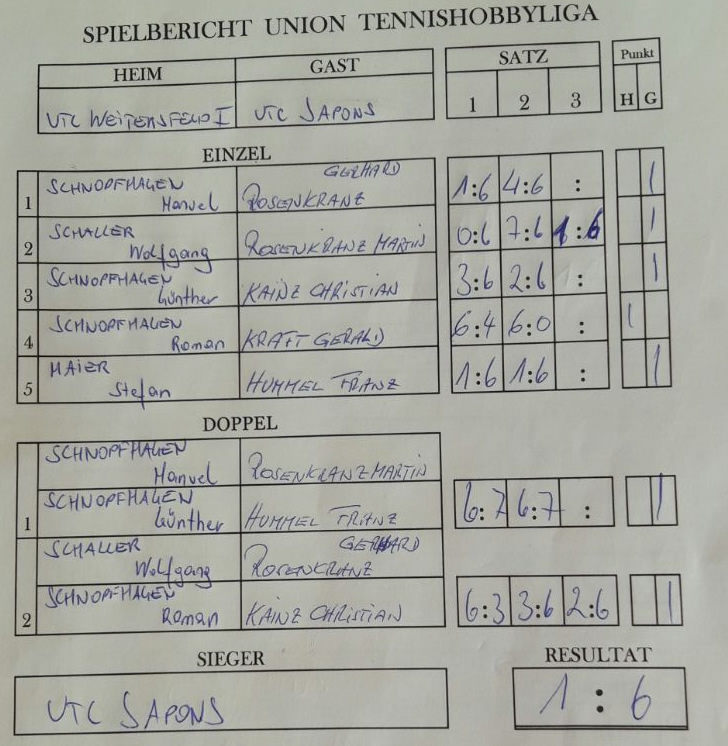 SPIELBERICHT UNION TENNISHOBBYLIGA
HEIM GAST SATZ Punkt
1 2 3 H G
UTC WEITERSFELD I UTC JAPONS
EINZEL
1 SCHNOPFHAGEN Manuel GERHARD ROSENKRANZ 1:6 4:6 : 1
2 SCHALLER Wolfgang ROSENKRANZ MARTIN 0:6 7:6 1:6 1
3 SCHNOPFHAGEN Günther KAINZ CHRISTIAN 3:6 2:6 : 1
4 SCHNOPFHAGEN Roman KRAFT GERALD 6:4 6:0 : 1
5 MAIER Stefan HUMMEL FRANZ 1:6 1:6 : 1
DOPPEL
SCHNOPFHAGEN Manuel ROSENKRANZ MARTIN
1 SCHNOPFHAGEN Günther HUMMEL FRANZ 6:7 6:7 : 1
SCHALLER Wolfgang GERHARD ROSENKRANZ
2 SCHNOPFHAGEN Roman KAINZ CHRISTIAN 6:3 3:6 2:6 1
SIEGER RESULTAT
UTC JAPONS 1:6